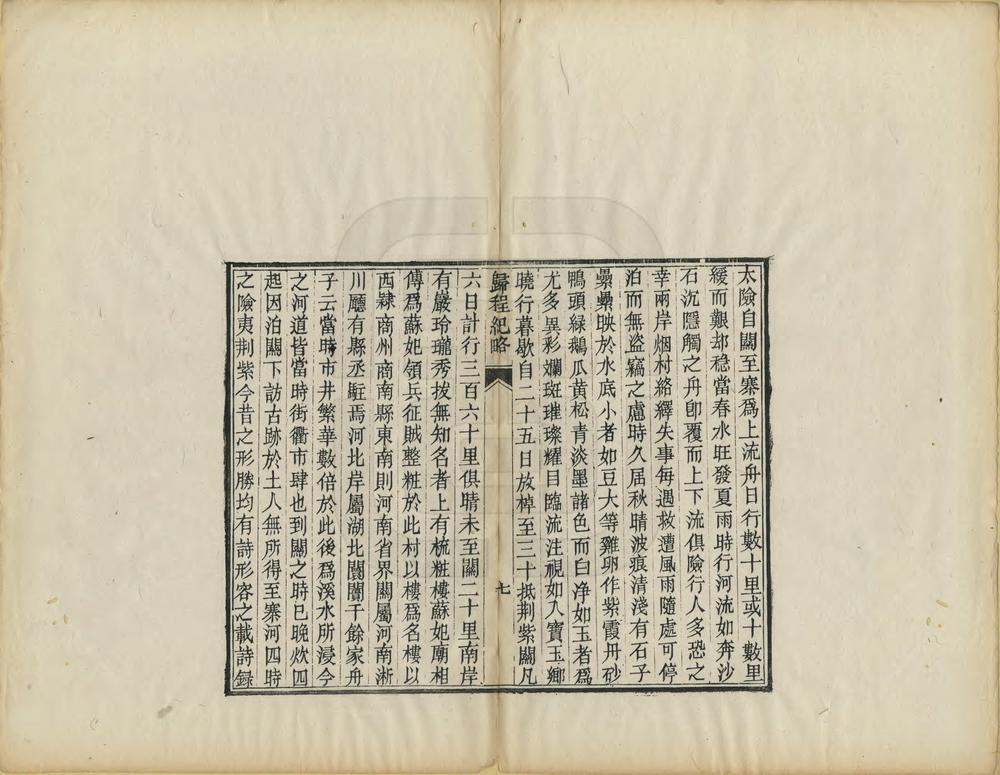 太險自關至寨爲上流舟日行數十里或十數里
緩而艱却稳當春水旺發夏雨時行河流如奔沙
石沉隱觸之舟卽覆而上下流俱險行人多恐之
幸兩岸烟村絡繹失事每週救遭風雨隨處可停
泊而無盜竊之慮時久屆秋晴波痕清淺有石子
纍纍映於水底小者如豆大等雞卵作紫霞丹砂
鴨頭緑鵝瓜黄松青淡墨諸色而白净如玉者爲
尤多異彩斕斑璀璨耀目臨流注視如入寶玉鄉
曉行暮歇自二十五日放棹至三十抵荆紫關凡
歸程紀略
七
六日計行三百六十里俱晴未至關二十里南岸
有巖玲瓏秀拔無知名者上有梳粧樓蘇妃廟相
傳爲蘇妃領兵征賊整粧於此村以樓爲名樓以
西隸商州商南縣東南則河南省界關屬河南淅
川廳有縣丞駐焉河北岸屬湖北闤闠千餘家舟
子云當時市井繁華數倍於此後爲溪水所浸今
之河道皆當時街衢市肆也到關之時已晚炊四
起因泊關下訪古跡於土人無所得至寨河四時
之險夷荆紫今昔之形勝均有詩形容之載詩録